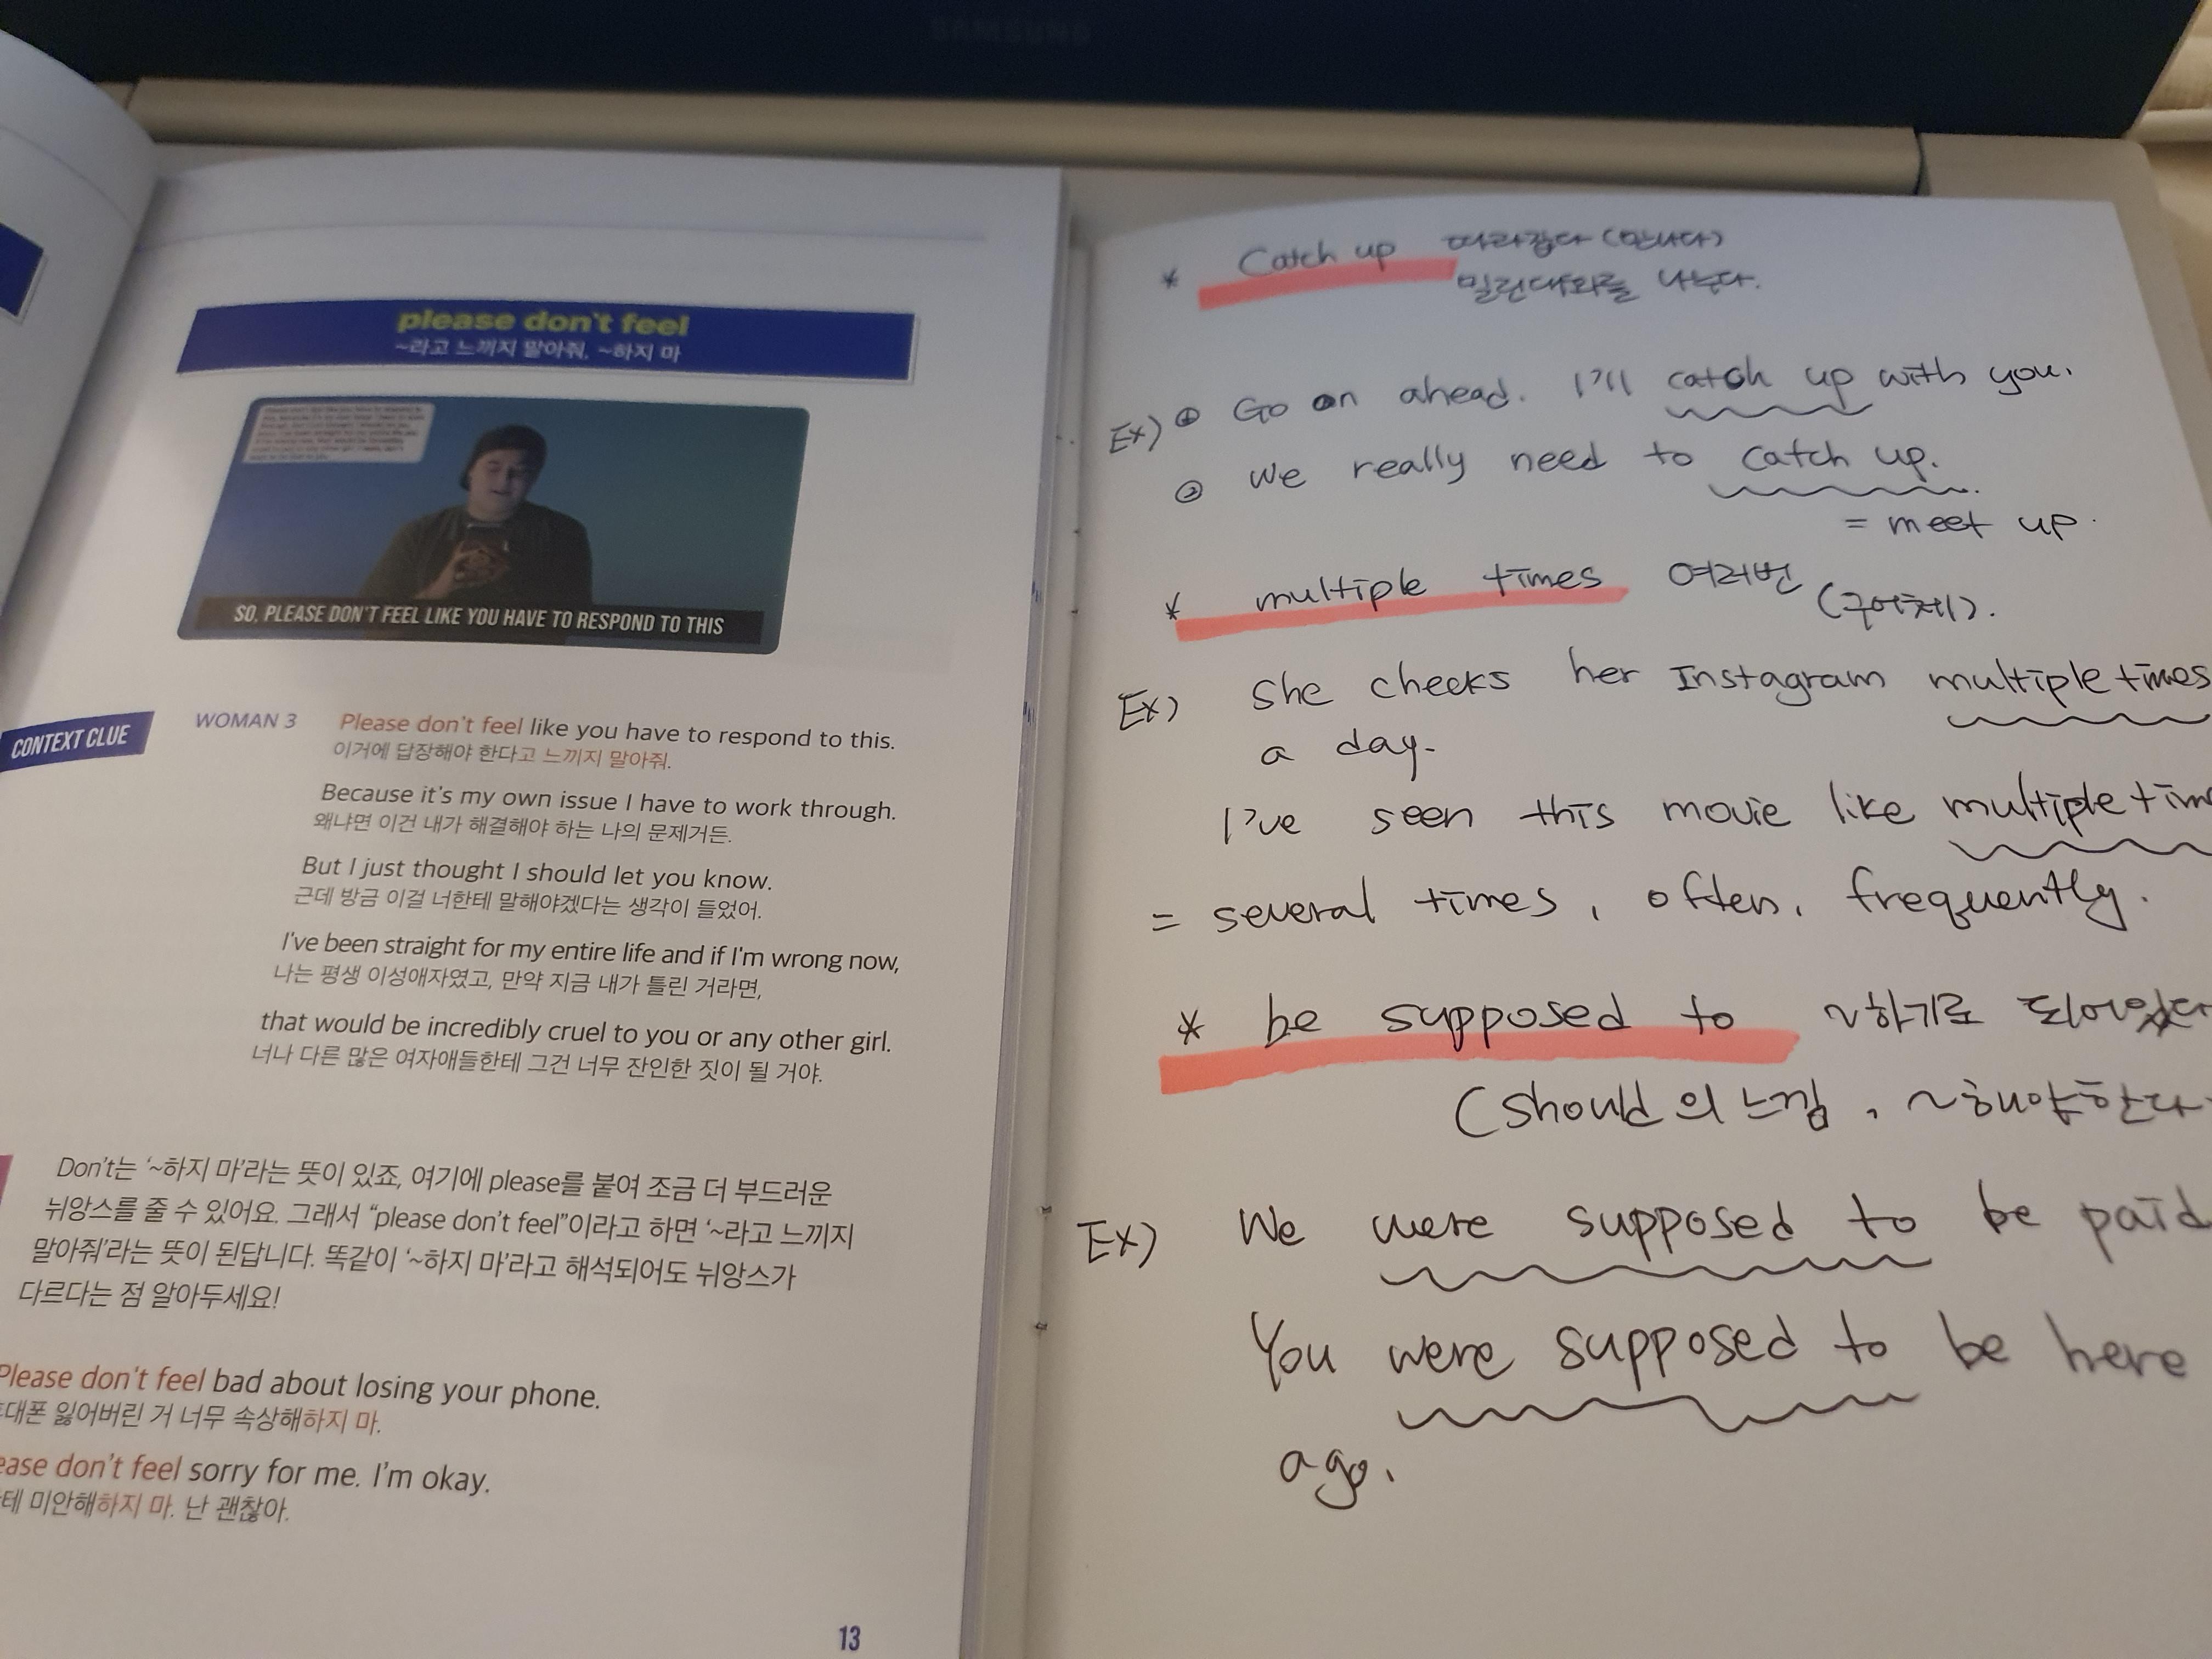 SAMSUNG
please don't feel
~라고 느끼지 말아줘, ~하지 마
SO, PLEASE DON'T FEEL LIKE YOU HAVE TO RESPOND TO THIS
CONTEXT CLUE
WOMAN 3 Please don't feel like you have to respond to this.
이거에 답장해야 한다고 느끼지 말아줘.
Because it's my own issue I have to work through.
왜냐면 이건 내가 해결해야 하는 나의 문제거든.
But I just thought I should let you know.
근데 방금 이걸 너한테 말해야겠다는 생각이 들었어.
I've been straight for my entire life and if I'm wrong now,
나는 평생 이성애자였고, 만약 지금 내가 틀린 거라면,
that would be incredibly cruel to you or any other girl.
너나 다른 많은 여자애들한테 그건 너무 잔인한 짓이 될 거야.
Don't는 '~하지 마'라는 뜻이 있죠, 여기에 please를 붙여 조금 더 부드러운
뉘앙스를 줄 수 있어요. 그래서 "please don't feel"이라고 하면 '~라고 느끼지
말아줘'라는 뜻이 된답니다. 똑같이 '~하지 마'라고 해석되어도 뉘앙스가
다르다는 점 알아두세요!
Please don't feel bad about losing your phone.
대폰 잃어버린 거 너무 속상해하지 마.
ease don't feel sorry for me. I'm okay.
테 미안해하지 마. 난 괜찮아.
13
* Catch up 따라잡다 (만나다)
밀린대화를 나누다.
Ex) ① Go on ahead. I'll catch up with you.
② We really need to catch up.
= meet up.
* multiple times 여러번
(구어체).
Ex) She checks her Instagram multiple times
a day.
I've seen this movie like multiple tim
= several times, often, frequently.
* be supposed to ~하기로 되어있다
(should의 느낌, ~해야한다
Ex) We were supposed to be paid
You were supposed to be here
ago.